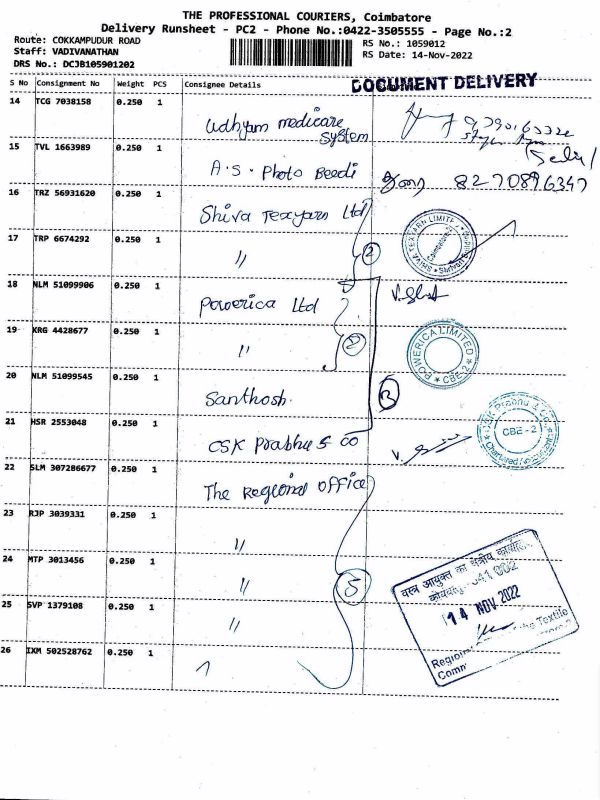 THE PROFESSIONAL COURIERS, Coimbatore
Delivery Runsheet - PC2 - Phone No.:0422-3505555 - Page No.:2
Route: COKKAMPUDUR ROAD
RS No.: 1059012
Staff: VADIVANATHAN
RS Date: 14-Nov-2022
DRS No.: DCJB105901202
DOCUMENT DELIVERY
S No Consignment No Weight PCS Consignee Details
14 TCG 7038158 0.250 1 Udhyam medicare system
15 TVL 1663989 0.250 1 A.S. Photo Beedi 8270896347
16 TRZ 56931620 0.250 1 Shiva Texyarn Ltd
SHIVA TEXYARN LIMITED Coimbatore
17 TRP 6674292 0.250 1 〃 2
18 NLM 51099906 0.250 1 Powerica Ltd
19 KRG 4428677 0.250 1 〃 2
POWERICA LIMITED CBE-2
20 NLM 51099545 0.250 1 Santhosh.
21 HSR 2553048 0.250 1 CSK Prabhu & CO V.
CSK Prabhu & Co CBE - 2 Chartered Accountants
22 SLM 307286677 0.250 1 The Regional Office
23 RJP 3039331 0.250 1 〃
24 MTP 3013456 0.250 1 〃 5
25 SVP 1379108 0.250 1 〃
26 IXM 502528762 0.250 1
वस्त्र आयुक्त का क्षेत्रीय कार्यालय
14 NOV 2022
Textile